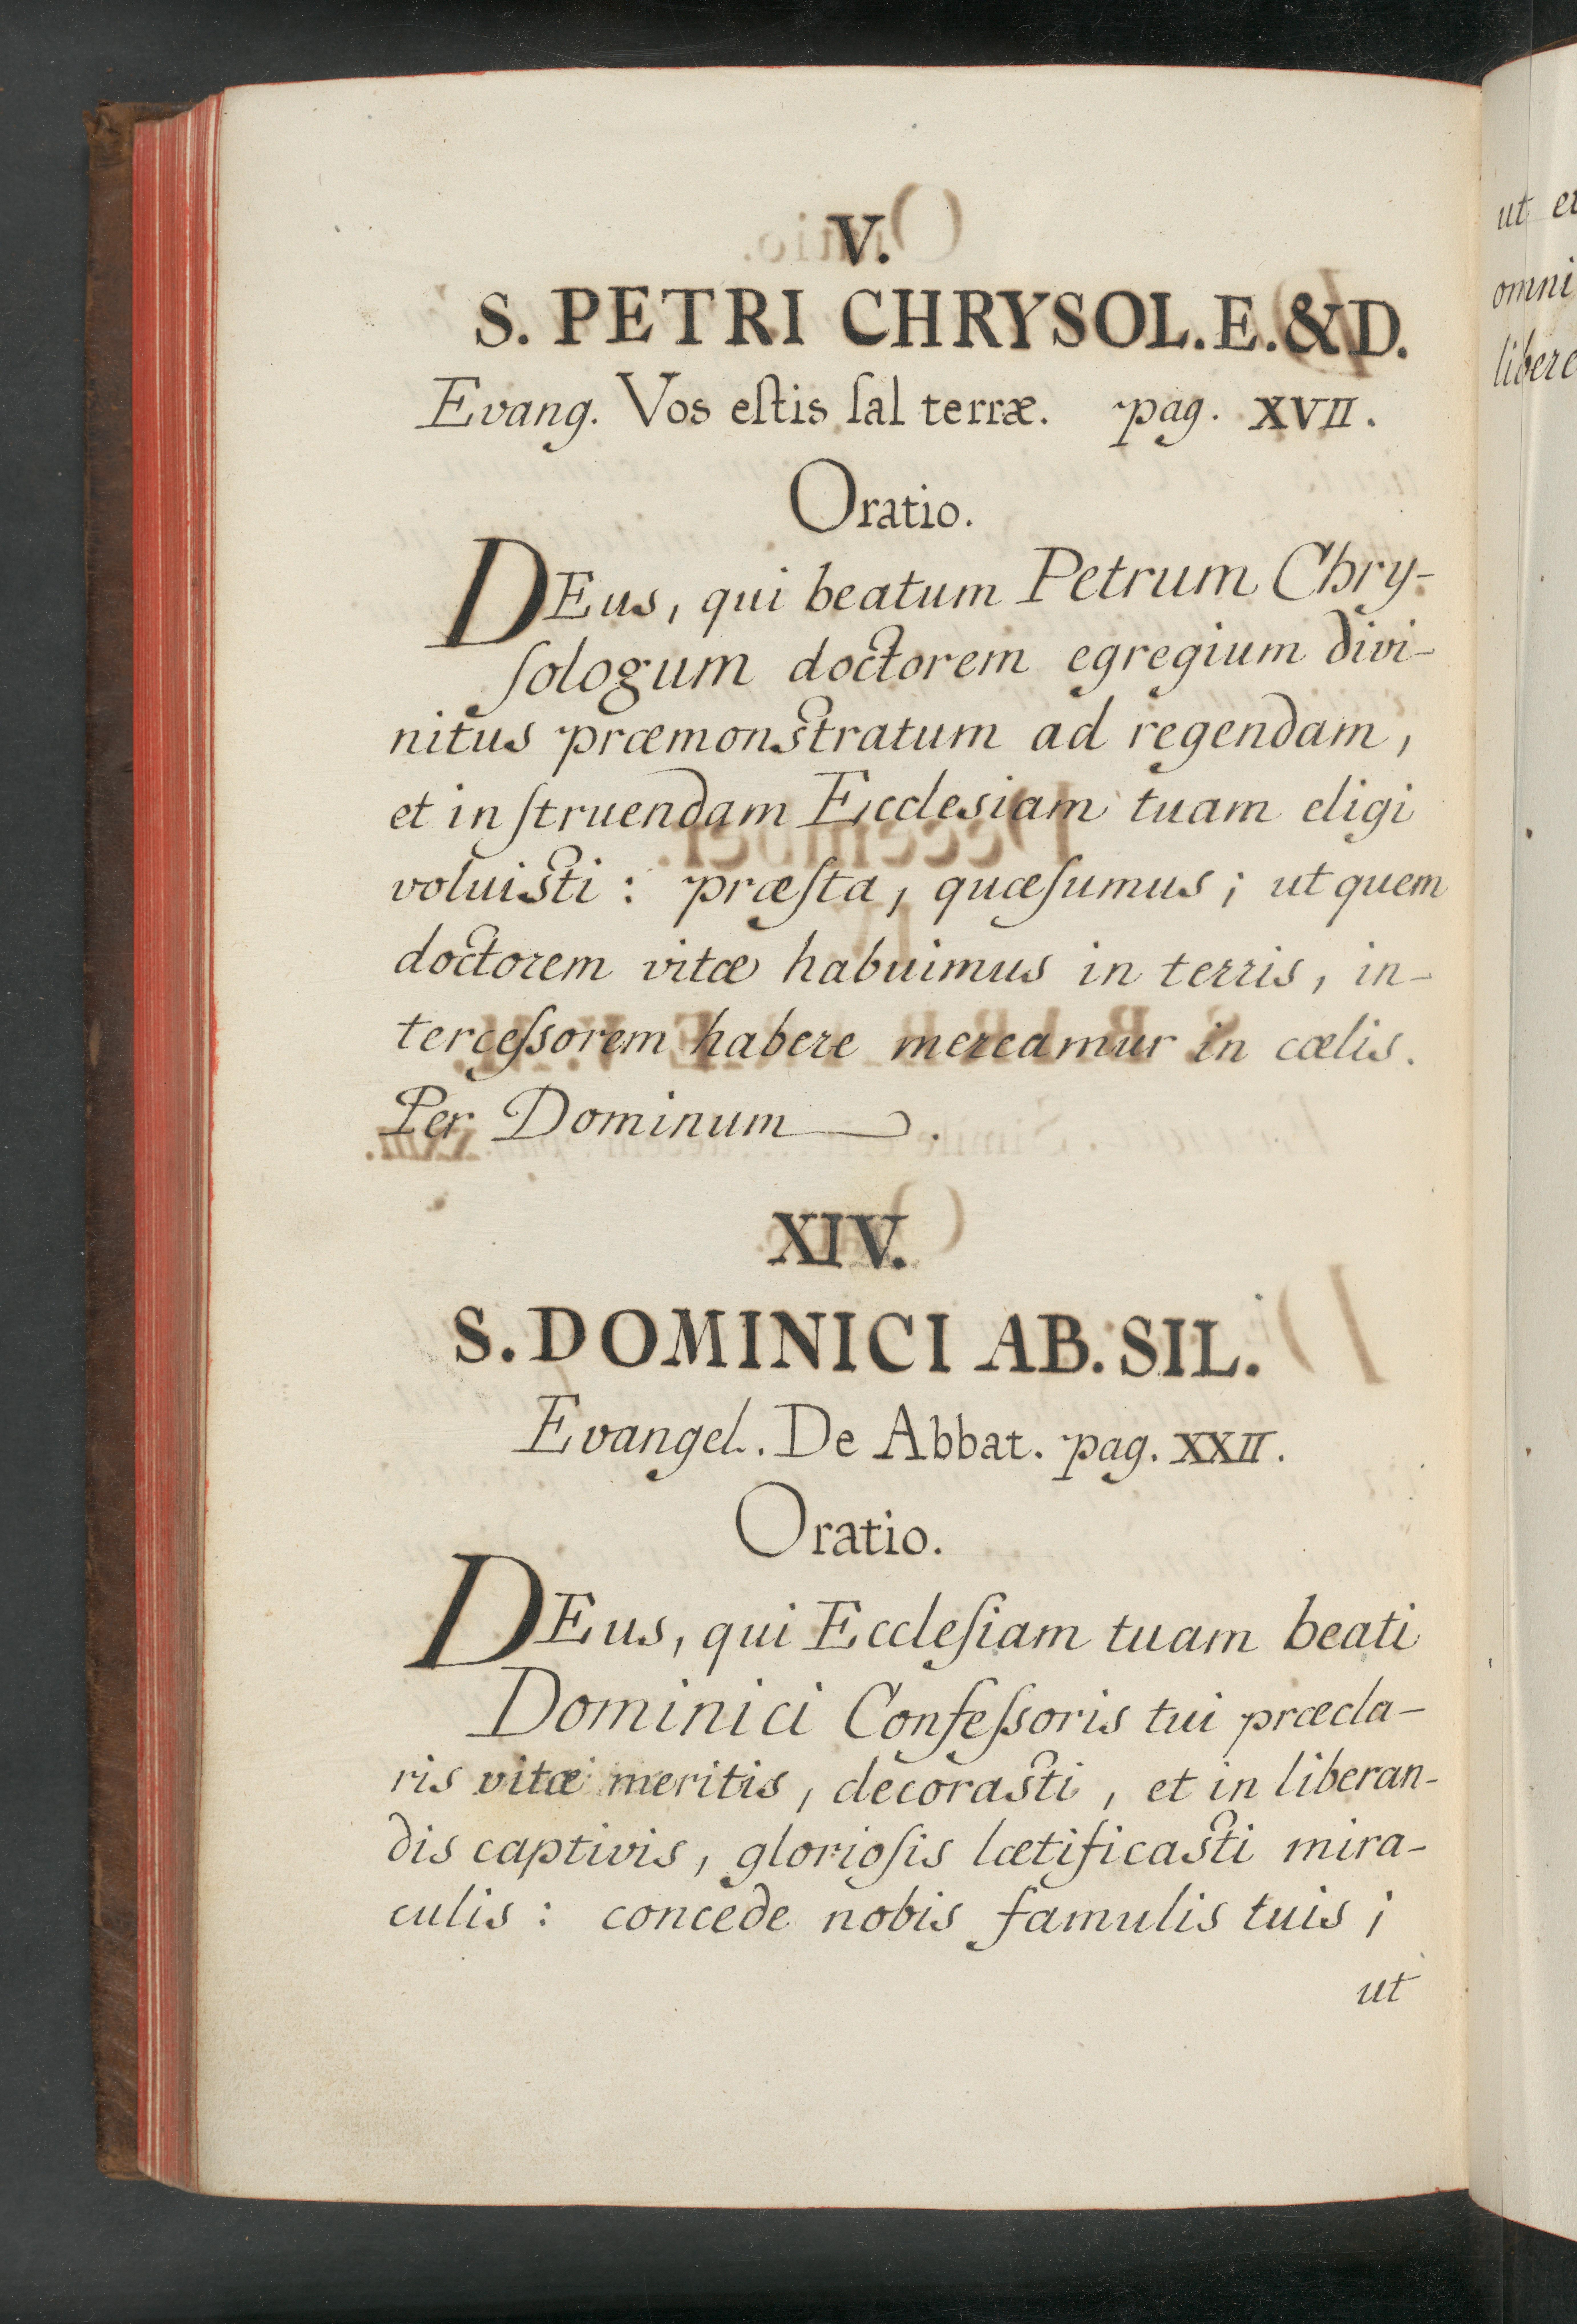 V.
S. PETRI CHRYSOL. E. & D.
Evang. Vos eſtis ſal terræ. pag. XVII.
Oratio.
DEus, qui beatum Petrum Chry-
ſologum doctorem egregium divi-
nitus præmonstratum ad regendam,
et inſtruendam Ecclesiam tuam eligi
voluisti : præſta, quæſumus ; ut quem
doctorem vitæ habuimus in terris, in-
terceſsorem habere mereamur in cœlis.
Per Dominum —.
XIV.
S. DOMINICI AB. SIL.
Evangel. De Abbat. pag. XXII.
Oratio.
DEus, qui Eccleſiam tuam beati
Dominici Confeſsoris tui præcla-
ris vitæ meritis, decorasti, et in liberan-
dis captivis, glorioſis lætificasti mira-
culis : concede nobis famulis tuis ;
ut
ut
omni
libere